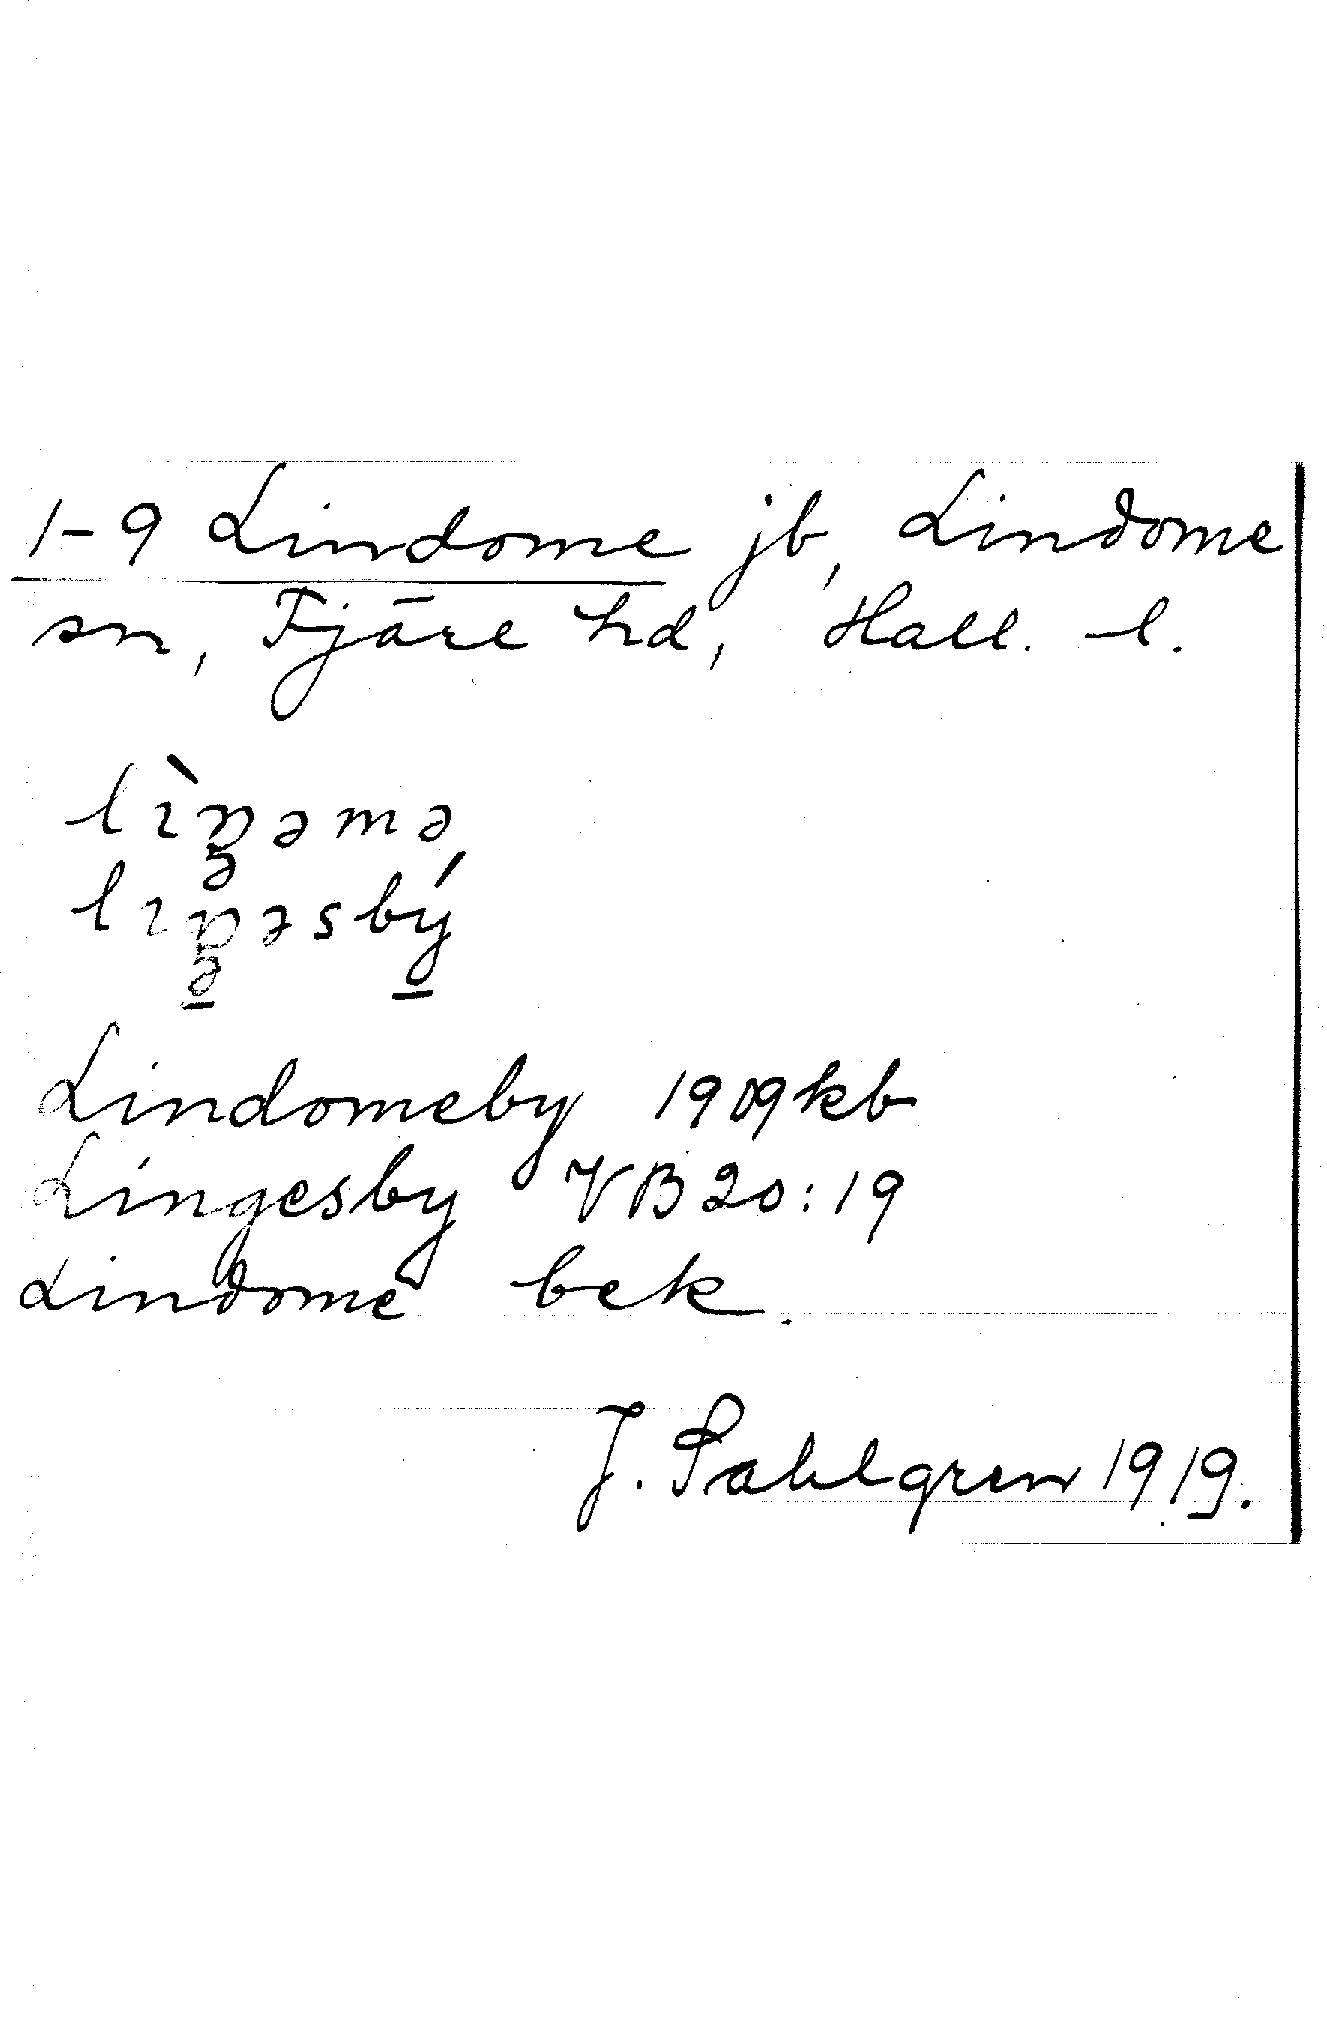 1-9 Lindome jb, Lindome
sn, Fjäre hd, Hall. l.
lìŋəmə
lɪŋəsbý
Lindomeby 1909 kb
Lingesby VB 20:19
Lindome bek.
J. Sahlgren 1919.